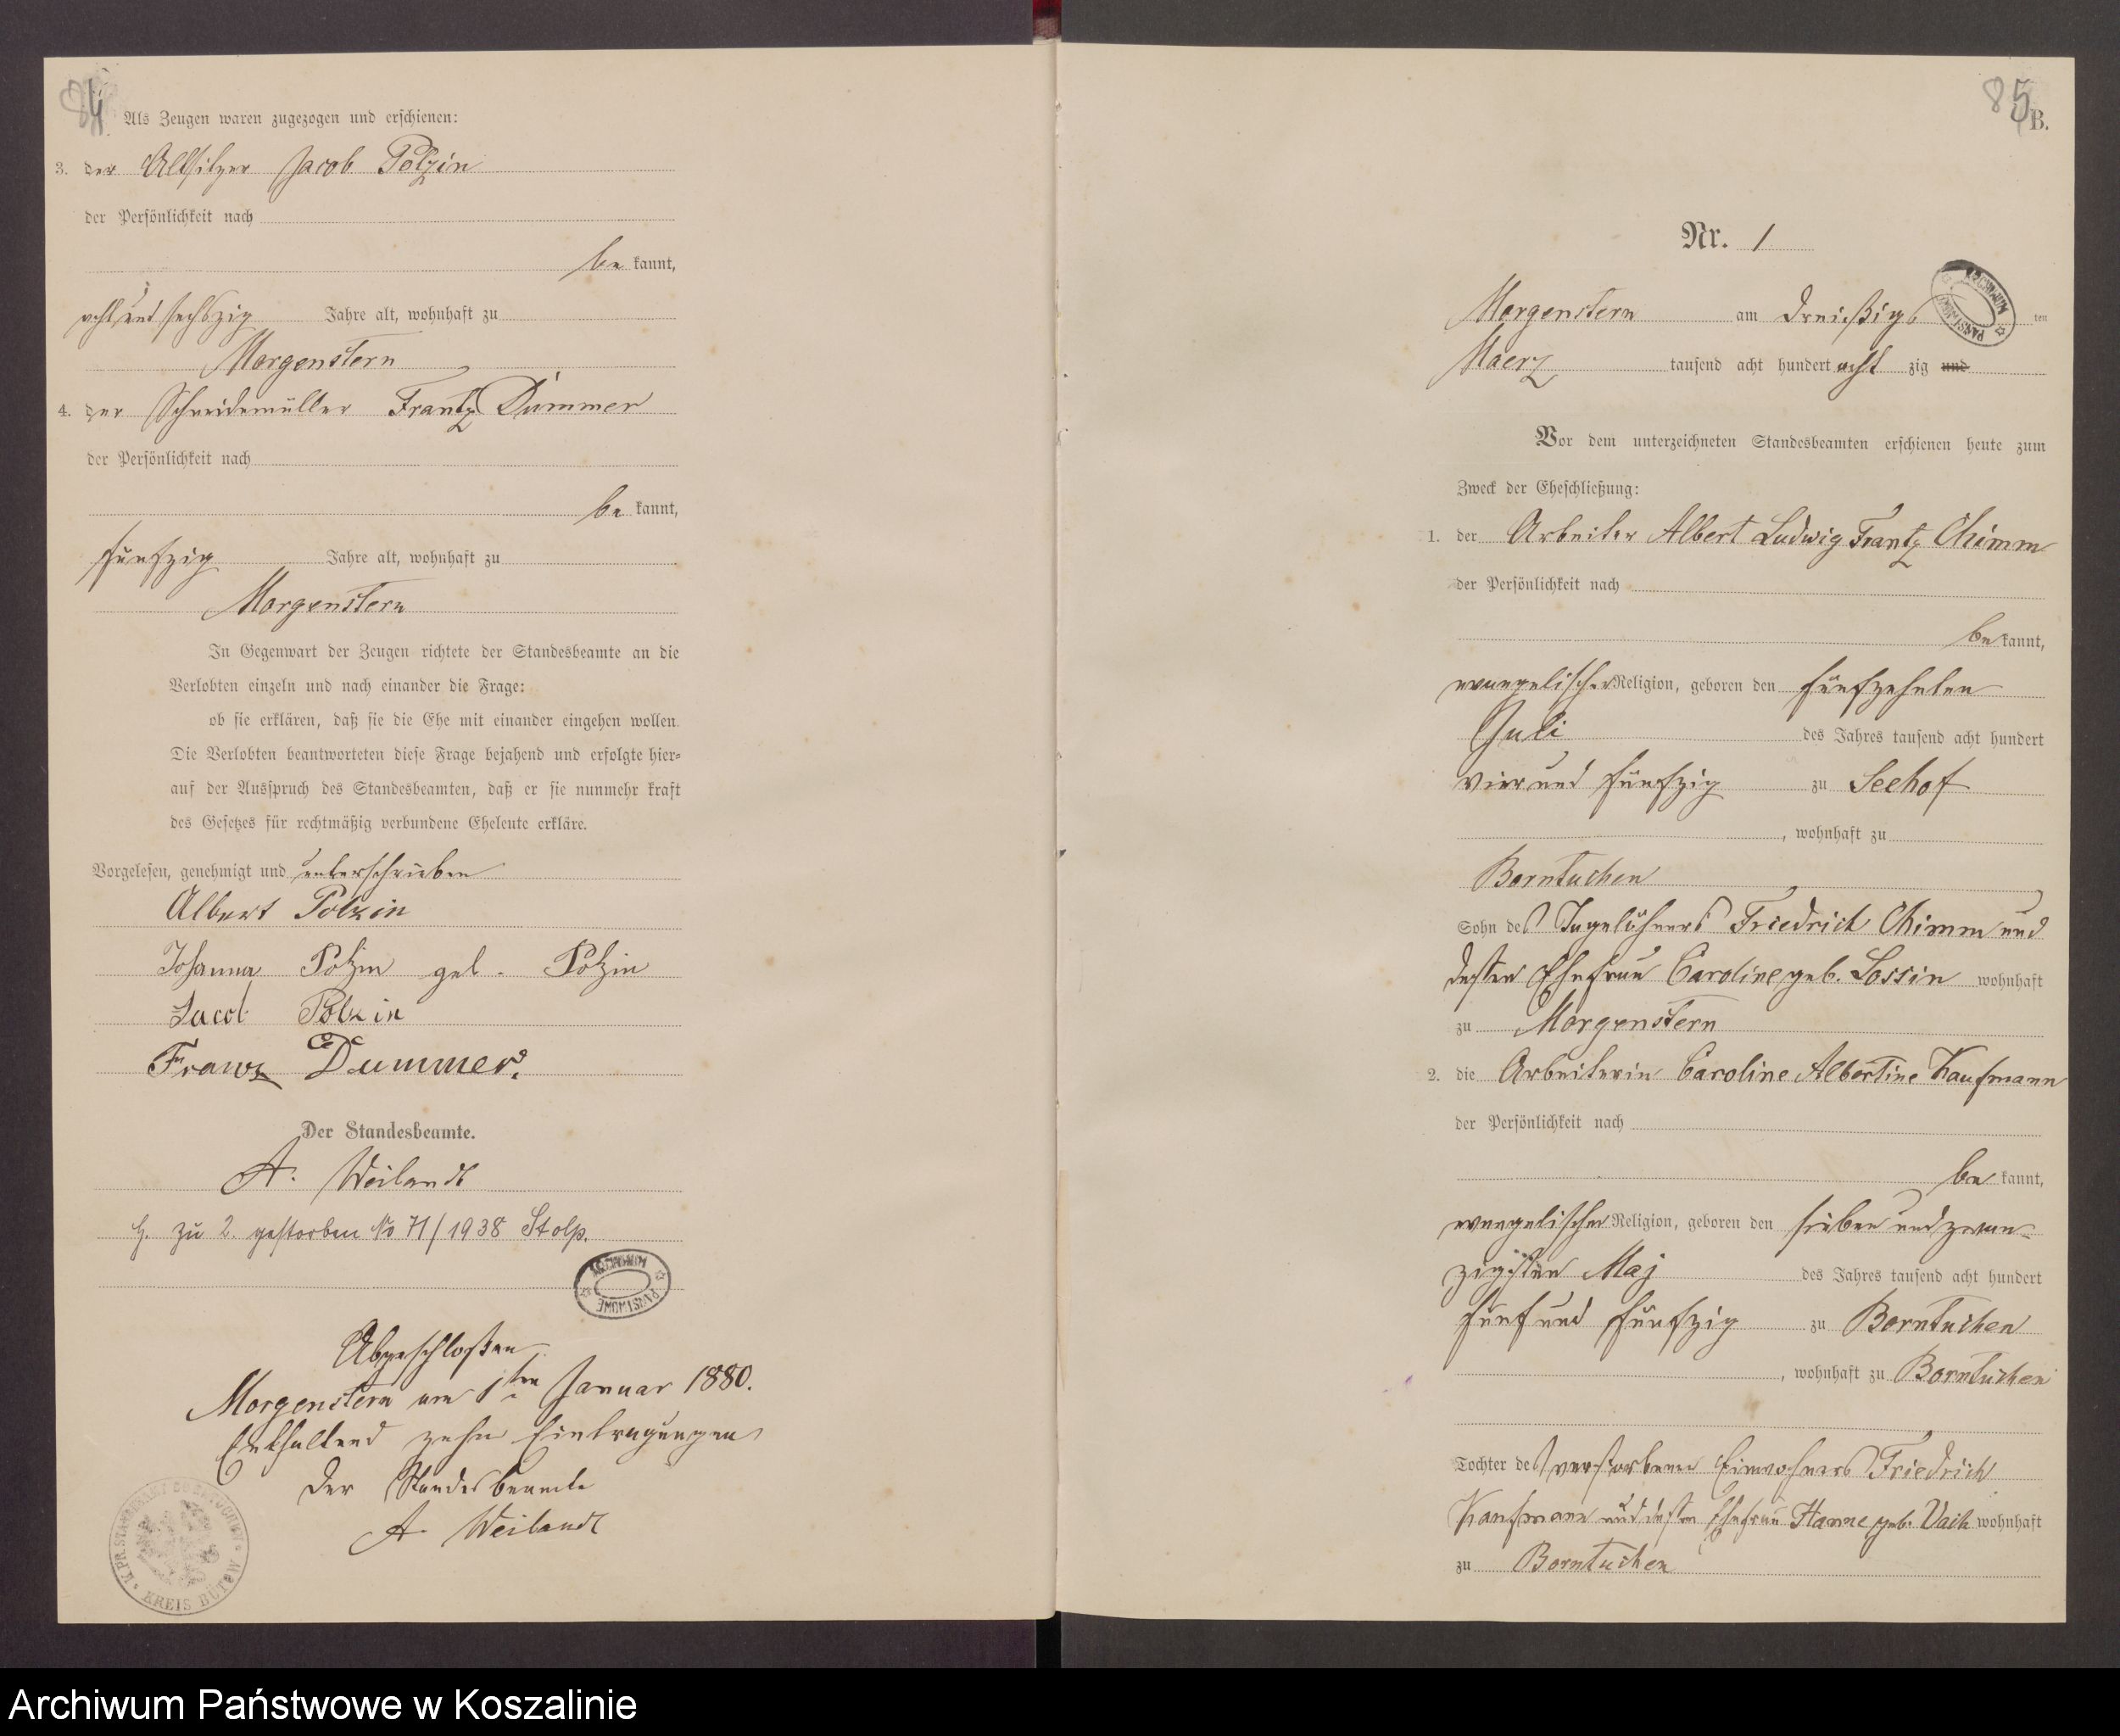 84
Als Zeugen waren zugezogen und erschienen:
3. der Altsitzer Jacob Polzin
der Persönlichkeit nach
be kannt,
acht und sechszig Jahre alt, wohnhaft zu
Morgenstern
4. der Schneidemüller Frantz Dummer
der Persönlichkeit nach
be kannt,
fünfzig Jahre alt, wohnhaft zu
Morgenstern
In Gegenwart der Zeugen richtete der Standesbeamte an die
Verlobten einzeln und nach einander die Frage:
ob sie erklären, daß sie die Ehe mit einander eingehen wollen.
Die Verlobten beantworteten diese Frage bejahend und erfolgte hier=
auf der Ausspruch des Standesbeamten, daß er sie nunmehr kraft
des Gesetzes für rechtmäßig verbundene Eheleute erkläre.
Vorgelesen, genehmigt und unterschrieben
Albert Polzin
Johanna Polzin geb. Polzin
Jacob Polzin
Franz Dummer.
Der Standesbeamte.
A. Weilandt
zu 2. gestorben No 71/1938 Stolp.
ARCHIWUM PAŃSTWOWE
Abgeschloßen
Morgenstern am 1ten Januar 1880.
Enthaltend zehn Eintragungen
Der Standesbeamte
A. Weilandt
K. PR. STANDESAMT KREIS BÜTOW
85
B.
Nr. 1
ARCHIWUM PAŃSTWOWE
Morgenstern am dreißigs ten
Maerz tausend acht hundert acht zig und
Vor dem unterzeichneten Standesbeamten erschienen heute zum
Zweck der Eheschließung:
1. der Arbeiter Albert Ludwig Frantz Chimm
der Persönlichkeit nach
be kannt,
evangelischer Religion, geboren den fünfzehnten
Juli des Jahres tausend acht hundert
vier und fünfzig zu Seehof
, wohnhaft zu
Borntuchen
Sohn des Tagelöhners Friedrich Chimm und
dessen Ehefrau Caroline geb. Lossin wohnhaft
zu Morgenstern
2. die Arbeiterin Caroline Albertine Kaufmann
der Persönlichkeit nach
be kannt,
evangelischer Religion, geboren den sieben und zwan=
zigsten Maj des Jahres tausend acht hundert
fünf und fünfzig zu Borntuchen
, wohnhaft zu Borntuchen
Tochter des verstorbenen Einwohners Friedrich
Kaufmann und dessen Ehefrau Hanne geb. wohnhaft
zu Borntuchen
Archiwum Państwowe w Koszalinie